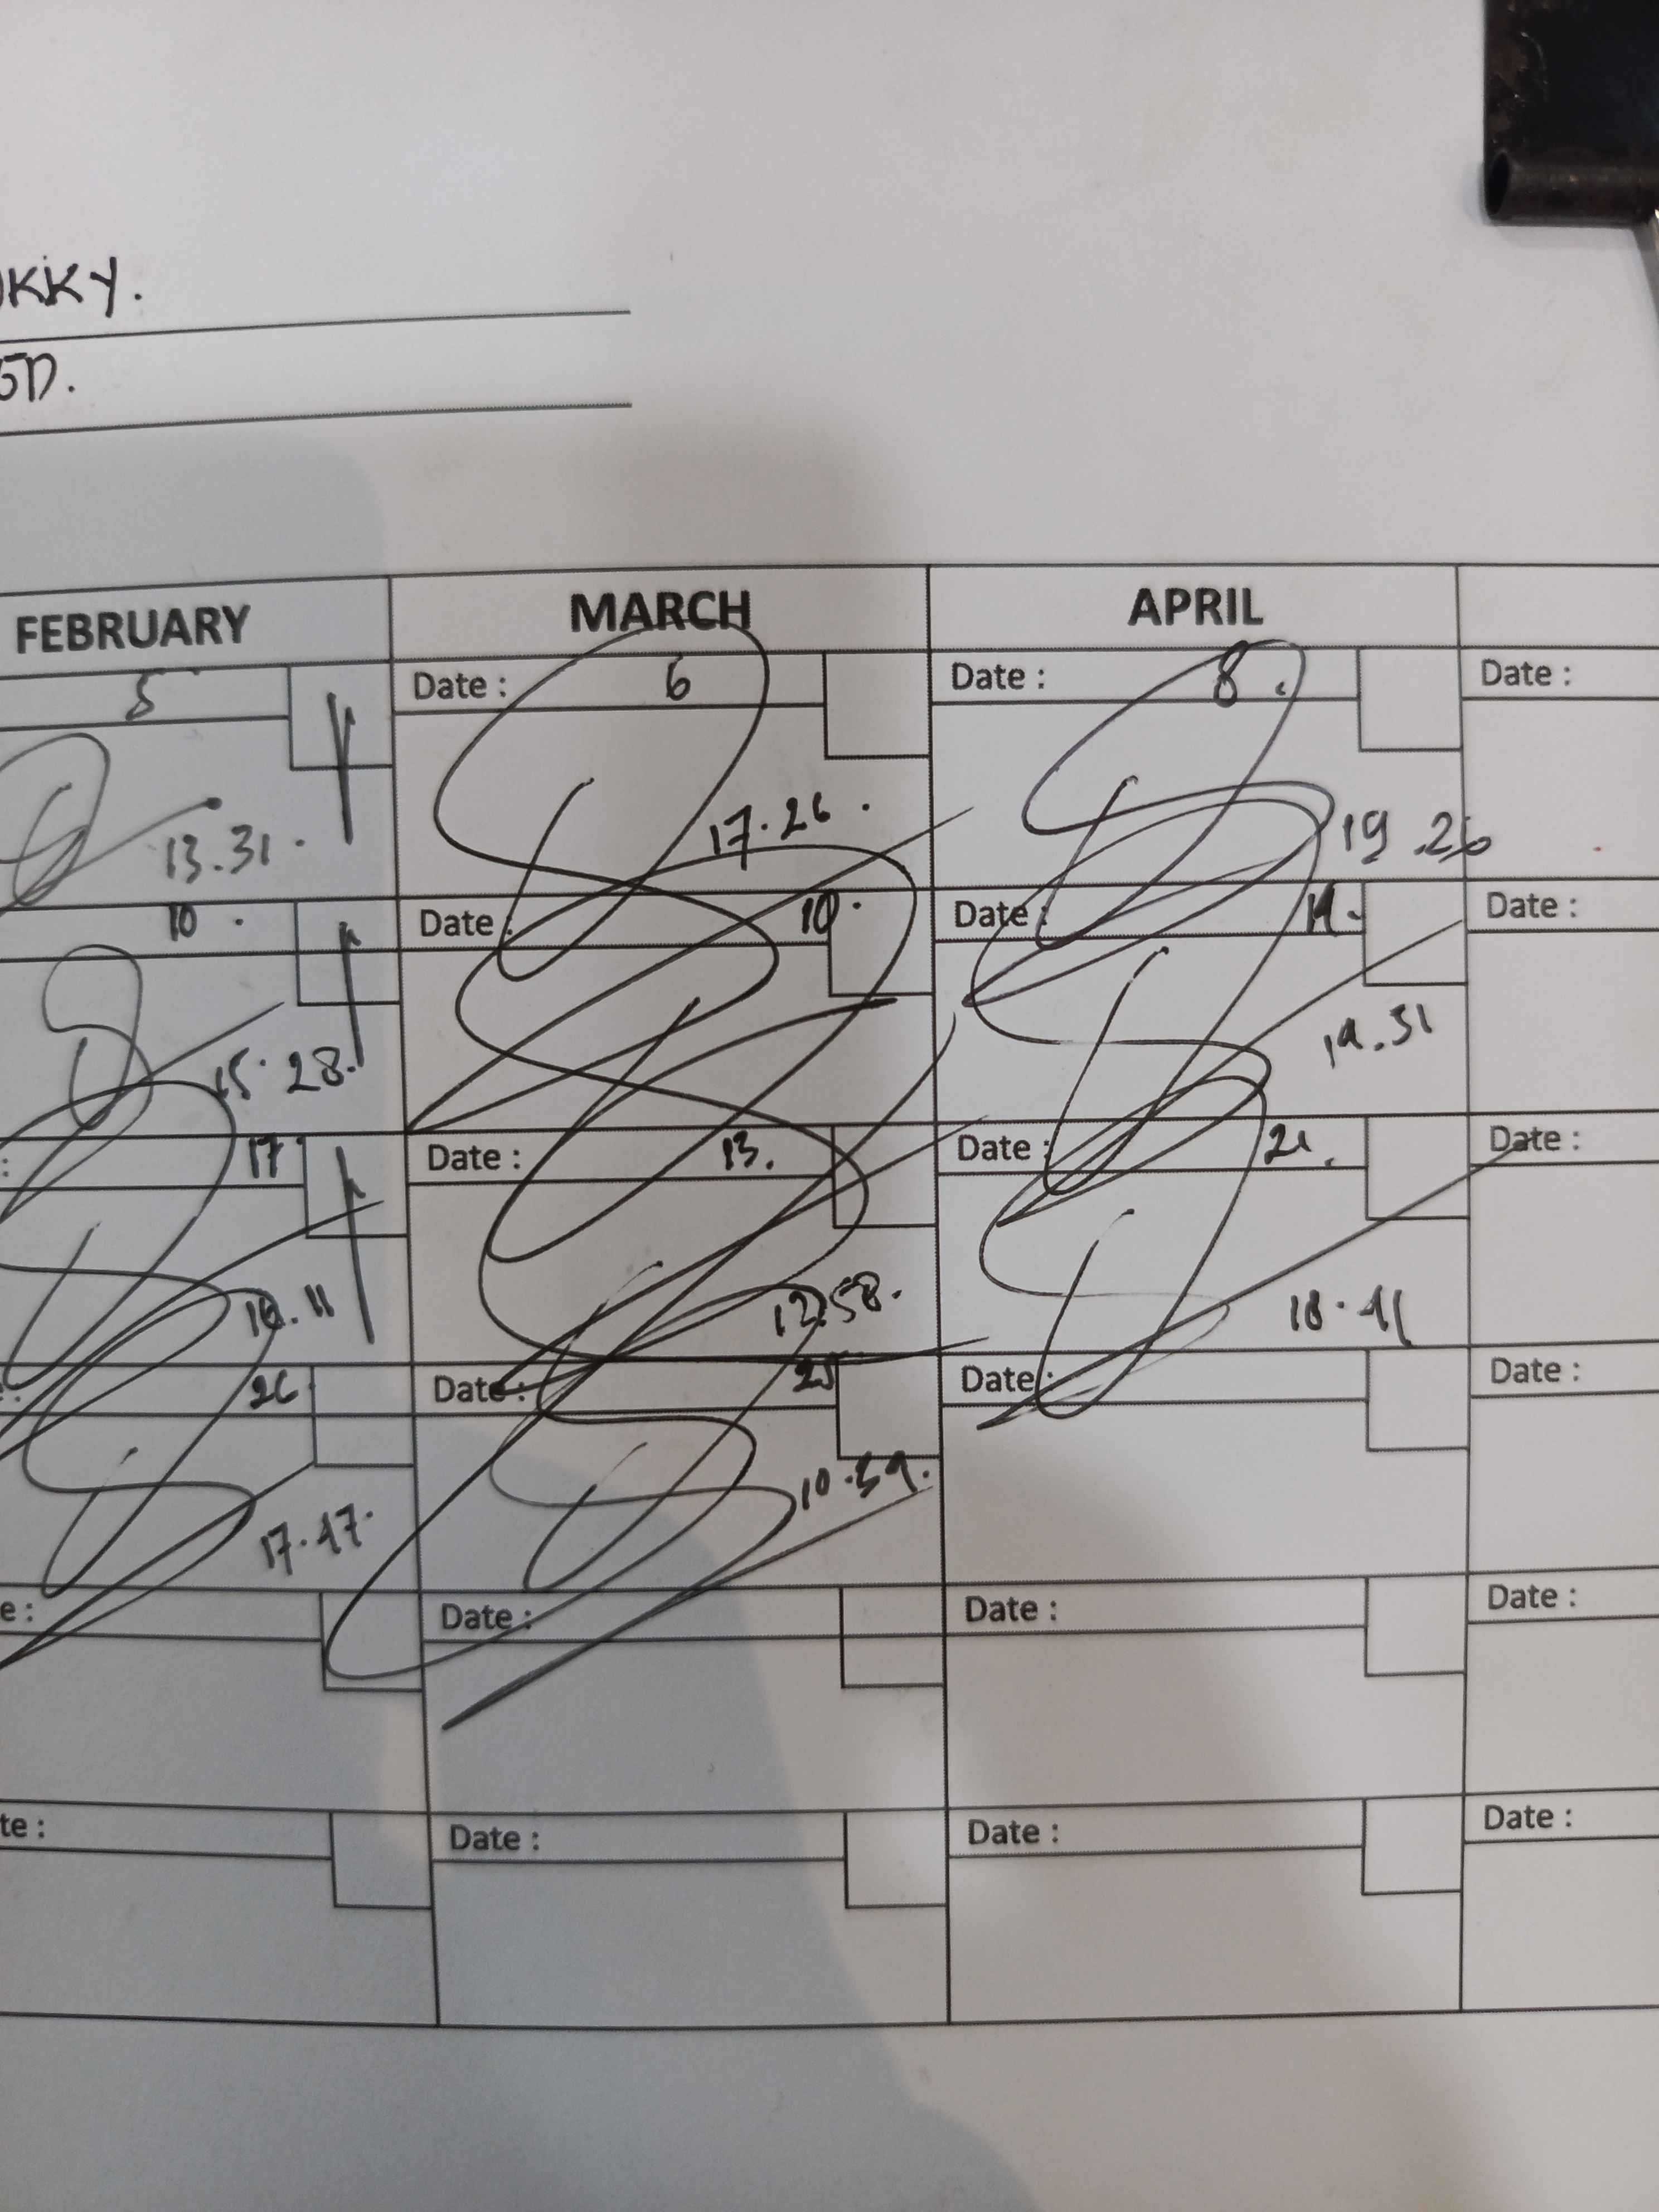 KKY.
FEBRUARY MARCH APRIL
5 Date : 6 Date : 8. Date :
13.31. 17.26. 19.26
10. Date : 10. Date : Date :
15.28. 19.31
: 17 Date : 13. Date : 21. Date :
.11 12.58. 18.41
: 26 Date : 25 Date : Date :
17.47. 10.59.
e : Date : Date : Date :
te : Date : Date : Date :